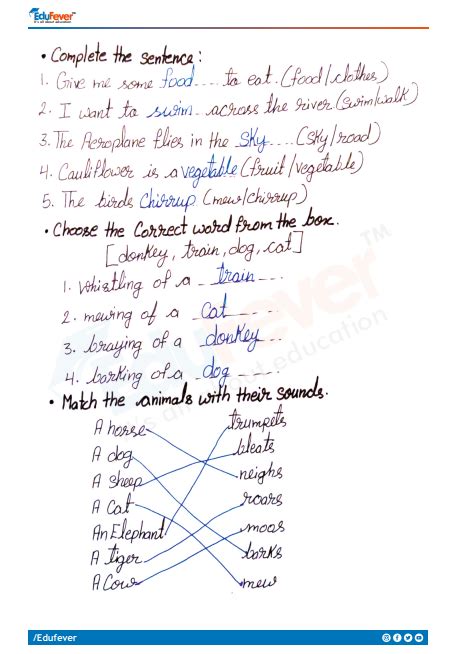 Edufever
• Complete the sentence:
1. Give me some food.... to eat. (food/clothes)
2. I want to swim.. across the river. (swim/walk)
3. The Aeroplane flies in the sky.... (sky/road)
4. Cauliflower is a vegetable (fruit/vegetable)
5. The birds Chirrup (mew/chirrup)
• Choose the Correct word from the box.
[donkey, train, dog, cat]
1. Whistling of a _ train _ _ .
2. mewing of a _ Cat _ _ _ .
3. braying of a _ donkey _ _ .
4. barking of a _ dog _ _ _ .
• Match the animals with their sounds.
A horse trumpets
A dog bleats
A sheep neighs
A Cat roars
An Elephant moos
A tiger barks
A Cow mew
Edufever TM
is all about education
/Edufever